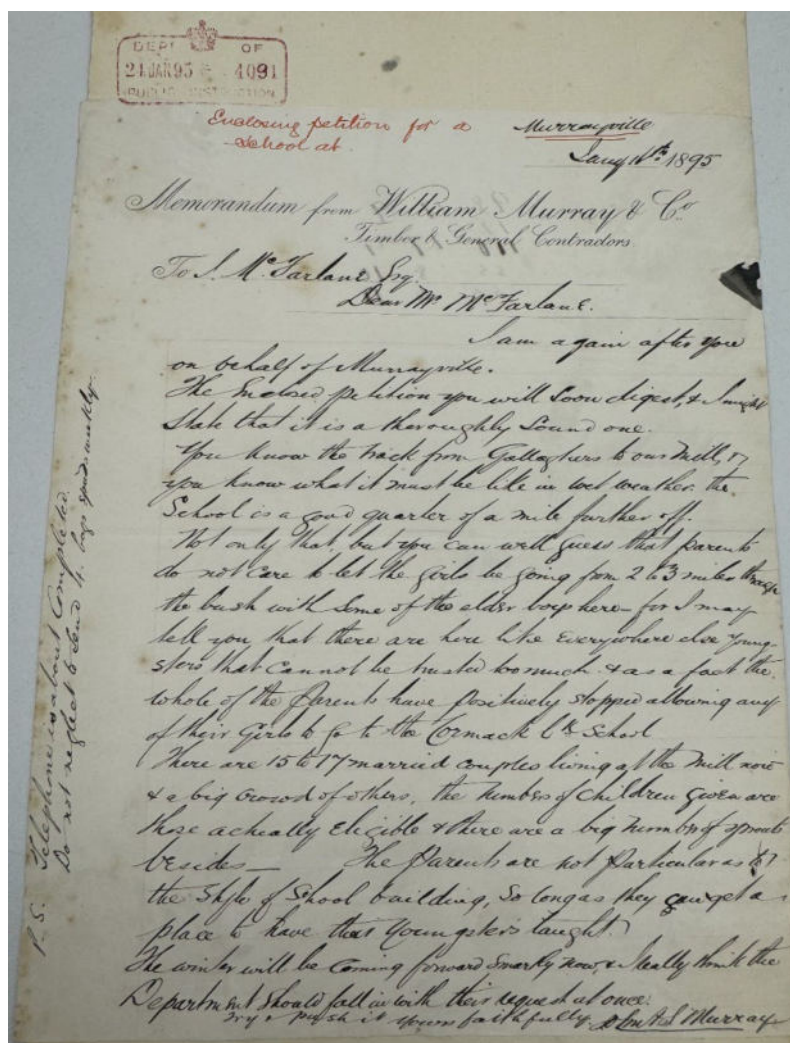 DEPT OF
21 JAN 95 4091
PUBLIC INSTRUCTION
Enclosing petition for a
school at
Murrayville
Jany 1895
Memorandum from William Murray & Co
Timber & General Contractors
To J. McFarlane Esq.
Dear Mr McFarlane.
I am again after you
on behalf of Murrayville.
The Enclosed petition you will soon digest, & I might
state that it is a thoroughly Sound one.
You know the track from Gallaghers to our Mill, &
you know what it must be like in wet weather. the
School is a good quarter of a mile further off.
Not only that, but you can well guess that parents
do not care to let the girls be going from 2 to 3 miles through
the bush with some of the elder boys here - for I may
tell you that there are here like Everywhere else Young-
sters that cannot be trusted too much. & as a fact the
whole of the Parents have positively stopped allowing any
of their Girls to go to the Cormack Ck School
There are 15 to 17 married couples living at the Mill now
& a big crowd of others, the numbers of children given are
those actually Eligible & there are a big number of sprouts
besides — The Parents are not Particular as to
the Style of School building, So long as they can get a
place to have their Youngsters taught.
The winter will be coming forward smartly now, & I really think the
Department should fall in with their request at once.
Try & push it yours faithfully. John A S Murray
P.S. Telephone is about Completed.
Do not neglect to send 4 weekly.